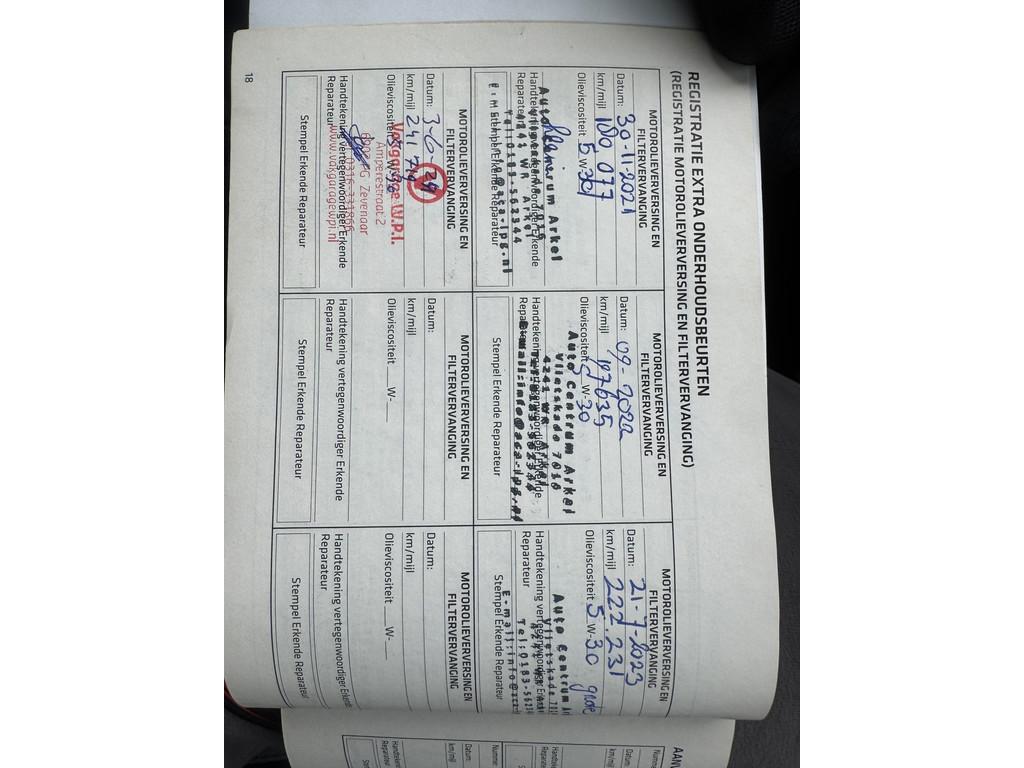 REGISTRATIE EXTRA ONDERHOUDSBEURTEN
(REGISTRATIE MOTOROLIEVERVERSING EN FILTERVERVANGING)
MOTOROLIEVERVERSING EN
FILTERVERVANGING
Datum: 30-11-2021
km/mijl 180 077
Olieviscositeit 5 W-30
Arkel
Handtekening vertegenwoordiger Erkende
Reparateur
4241 WR Arkel
Tel:0183-562344
Stempel Erkende Reparateur
MOTOROLIEVERVERSING EN
FILTERVERVANGING
Datum: 09-2022
km/mijl 197035
Olieviscositeit 5 W-30
Auto Centrum Arkel
Vlietskade 7016
4241 WR Arkel
Handtekening vertegenwoordiger Erkende
Reparateur
Tel:0183-562344
E-mail:info@aca-lpg.nl
MOTOROLIEVERVERSING EN
FILTERVERVANGING
Datum: 21-7-2023
km/mijl 222.231
Olieviscositeit 5 W-30 grote
Auto Centrum
Vlietskade
Handtekening vertegenwoordiger Erkende
Reparateur
Tel:0183-56234
E-mail:info@aca-
Stempel Erkende Reparateur
MOTOROLIEVERVERSING EN
FILTERVERVANGING
Datum: 3-6-24
km/mijl 241 719
Olieviscositeit 5 W-30
Vakgarage W.P.I.
Amperestraat 2
Zevenaar
Handtekening vertegenwoordiger Erkende
Reparateur
www.vakgaragewpi.nl
Stempel Erkende Reparateur
MOTOROLIEVERVERSING EN
FILTERVERVANGING
Datum:
km/mijl
Olieviscositeit __W-__
Handtekening vertegenwoordiger Erkende
Reparateur
Stempel Erkende Reparateur
MOTOROLIEVERVERSING EN
FILTERVERVANGING
Datum:
km/mijl
Olieviscositeit __W-__
Handtekening vertegenwoordiger Erkende
Reparateur
Stempel Erkende Reparateur
18
AANV
Nummer
Datum:
km/mijl
Handtekening
Reparateur
Stempel
Nummer:
Datum:
km/mijl
Handtekening
Reparateur
Stem